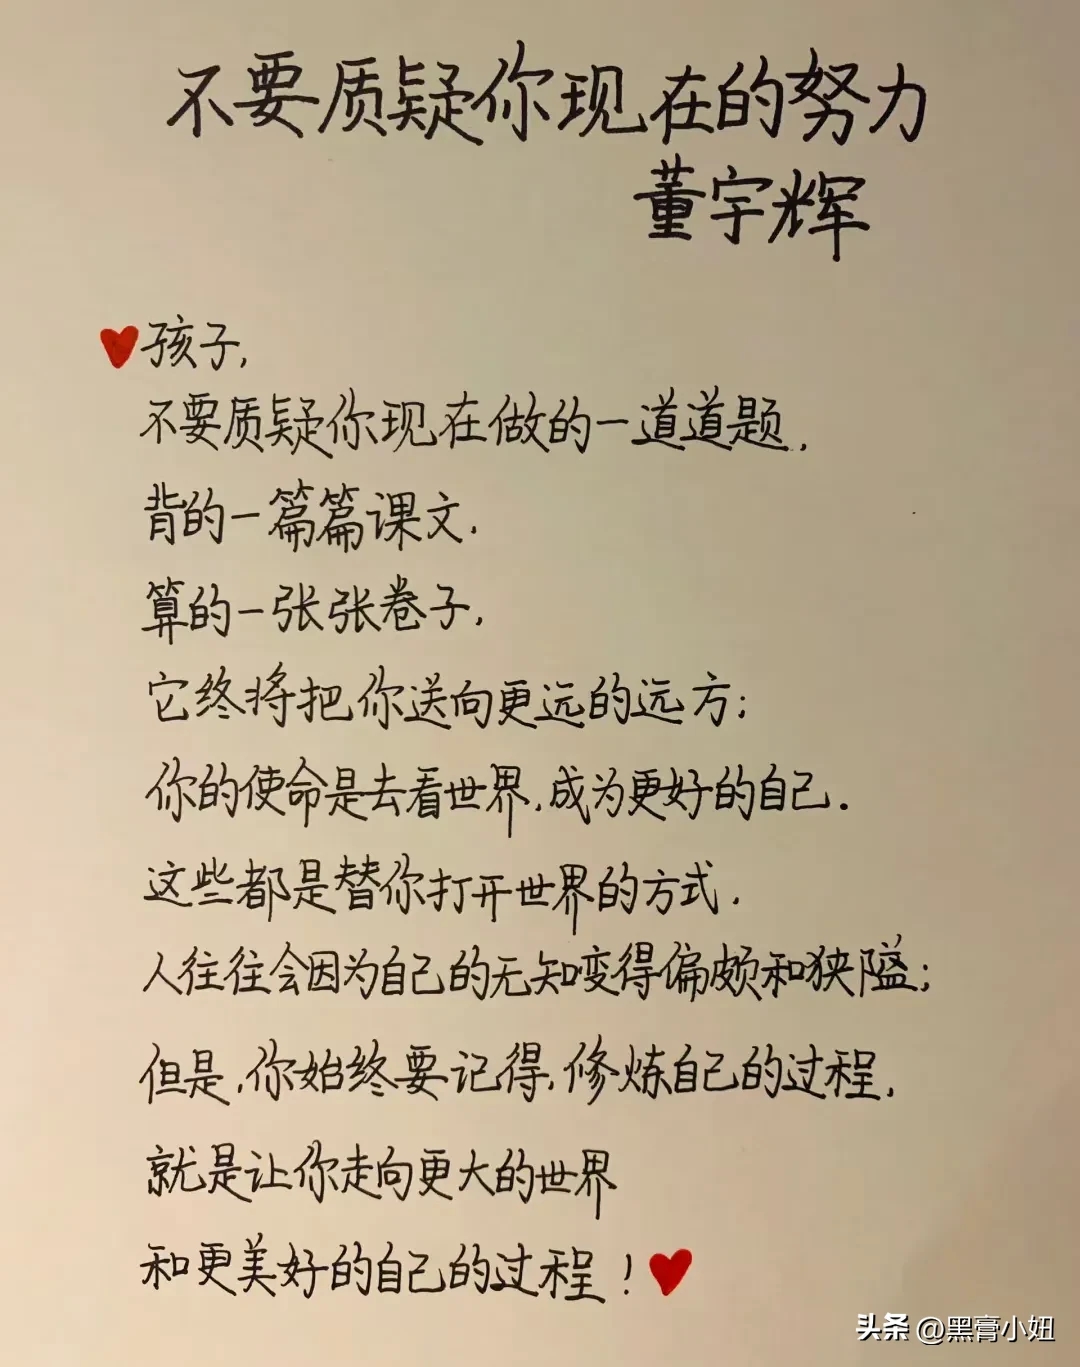 不要质疑你现在的努力
董宇辉
孩子,
不要质疑你现在做的一道道题,
背的一篇篇课文,
算的一张张卷子,
它终将把你送向更远的远方;
你的使命是去看世界,成为更好的自己.
这些都是替你打开世界的方式,
人往往会因为自己的无知变得偏颇和狭隘;
但是,你始终要记得,修炼自己的过程,
就是让你走向更大的世界
和更美好的自己的过程!
头条 @黑膏小妞